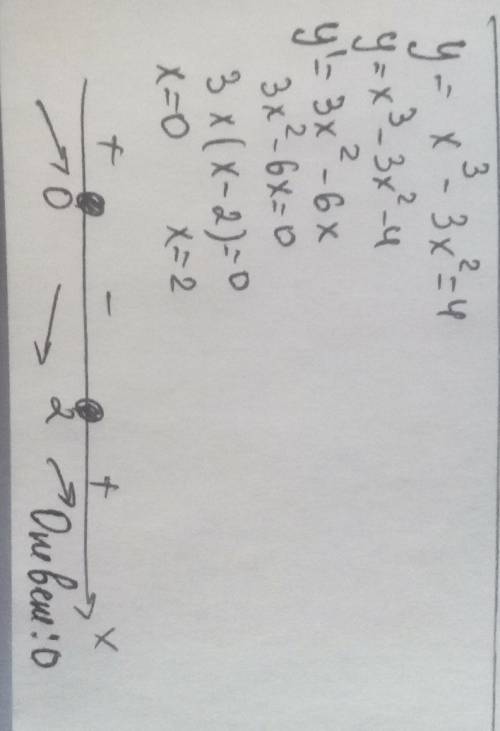 y = x³ - 3x² = 4
y = x³ - 3x² - 4
y' = 3x² - 6x
3x² - 6x = 0
3x(x - 2) = 0
x = 0 x = 2
+ - +
0 2 x
Ответ: 0